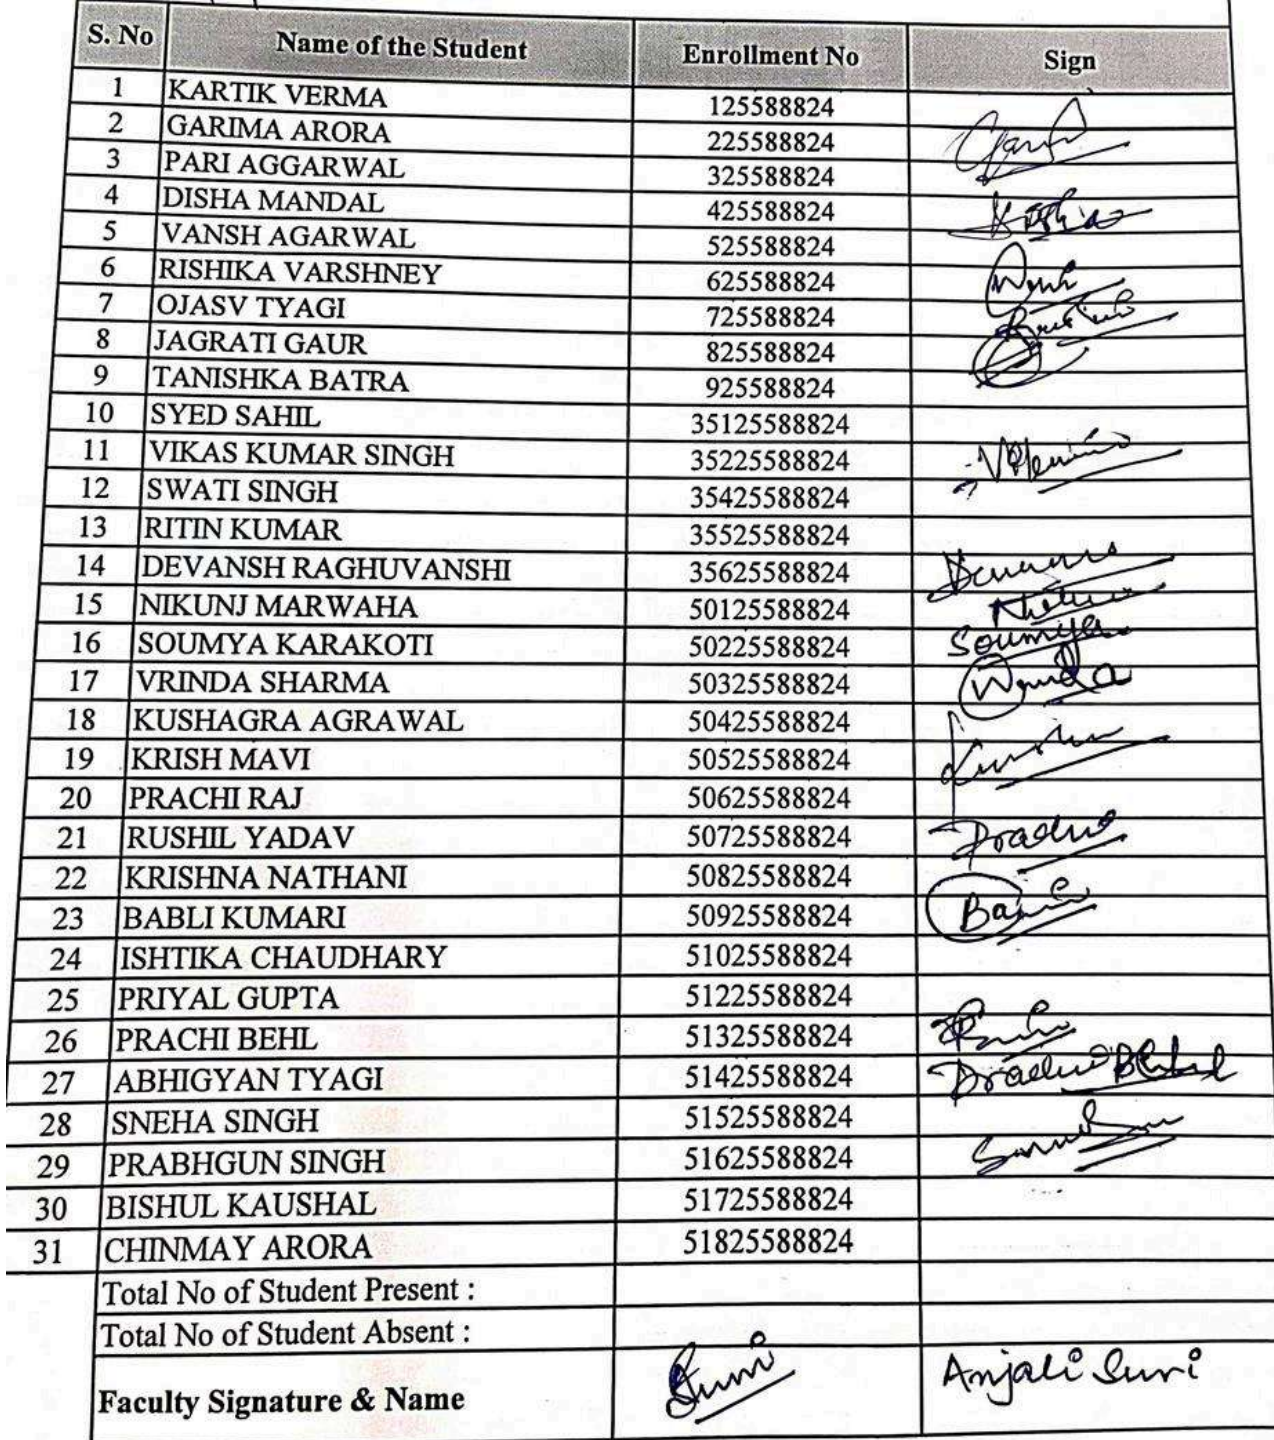 S. No Name of the Student Enrollment No Sign
1 KARTIK VERMA 125588824
2 GARIMA ARORA 225588824
3 PARI AGGARWAL 325588824
4 DISHA MANDAL 425588824
5 VANSH AGARWAL 525588824
6 RISHIKA VARSHNEY 625588824
7 OJASV TYAGI 725588824
8 JAGRATI GAUR 825588824
9 TANISHKA BATRA 925588824
10 SYED SAHIL 35125588824
11 VIKAS KUMAR SINGH 35225588824
12 SWATI SINGH 35425588824
13 RITIN KUMAR 35525588824
14 DEVANSH RAGHUVANSHI 35625588824
15 NIKUNJ MARWAHA 50125588824
16 SOUMYA KARAKOTI 50225588824 Soumya
17 VRINDA SHARMA 50325588824
18 KUSHAGRA AGRAWAL 50425588824
19 KRISH MAVI 50525588824
20 PRACHI RAJ 50625588824
21 RUSHIL YADAV 50725588824
22 KRISHNA NATHANI 50825588824
23 BABLI KUMARI 50925588824
24 ISHTIKA CHAUDHARY 51025588824
25 PRIYAL GUPTA 51225588824
26 PRACHI BEHL 51325588824
27 ABHIGYAN TYAGI 51425588824
28 SNEHA SINGH 51525588824
29 PRABHGUN SINGH 51625588824
30 BISHUL KAUSHAL 51725588824
31 CHINMAY ARORA 51825588824
Total No of Student Present :
Total No of Student Absent :
Faculty Signature & Name Anjali Suri